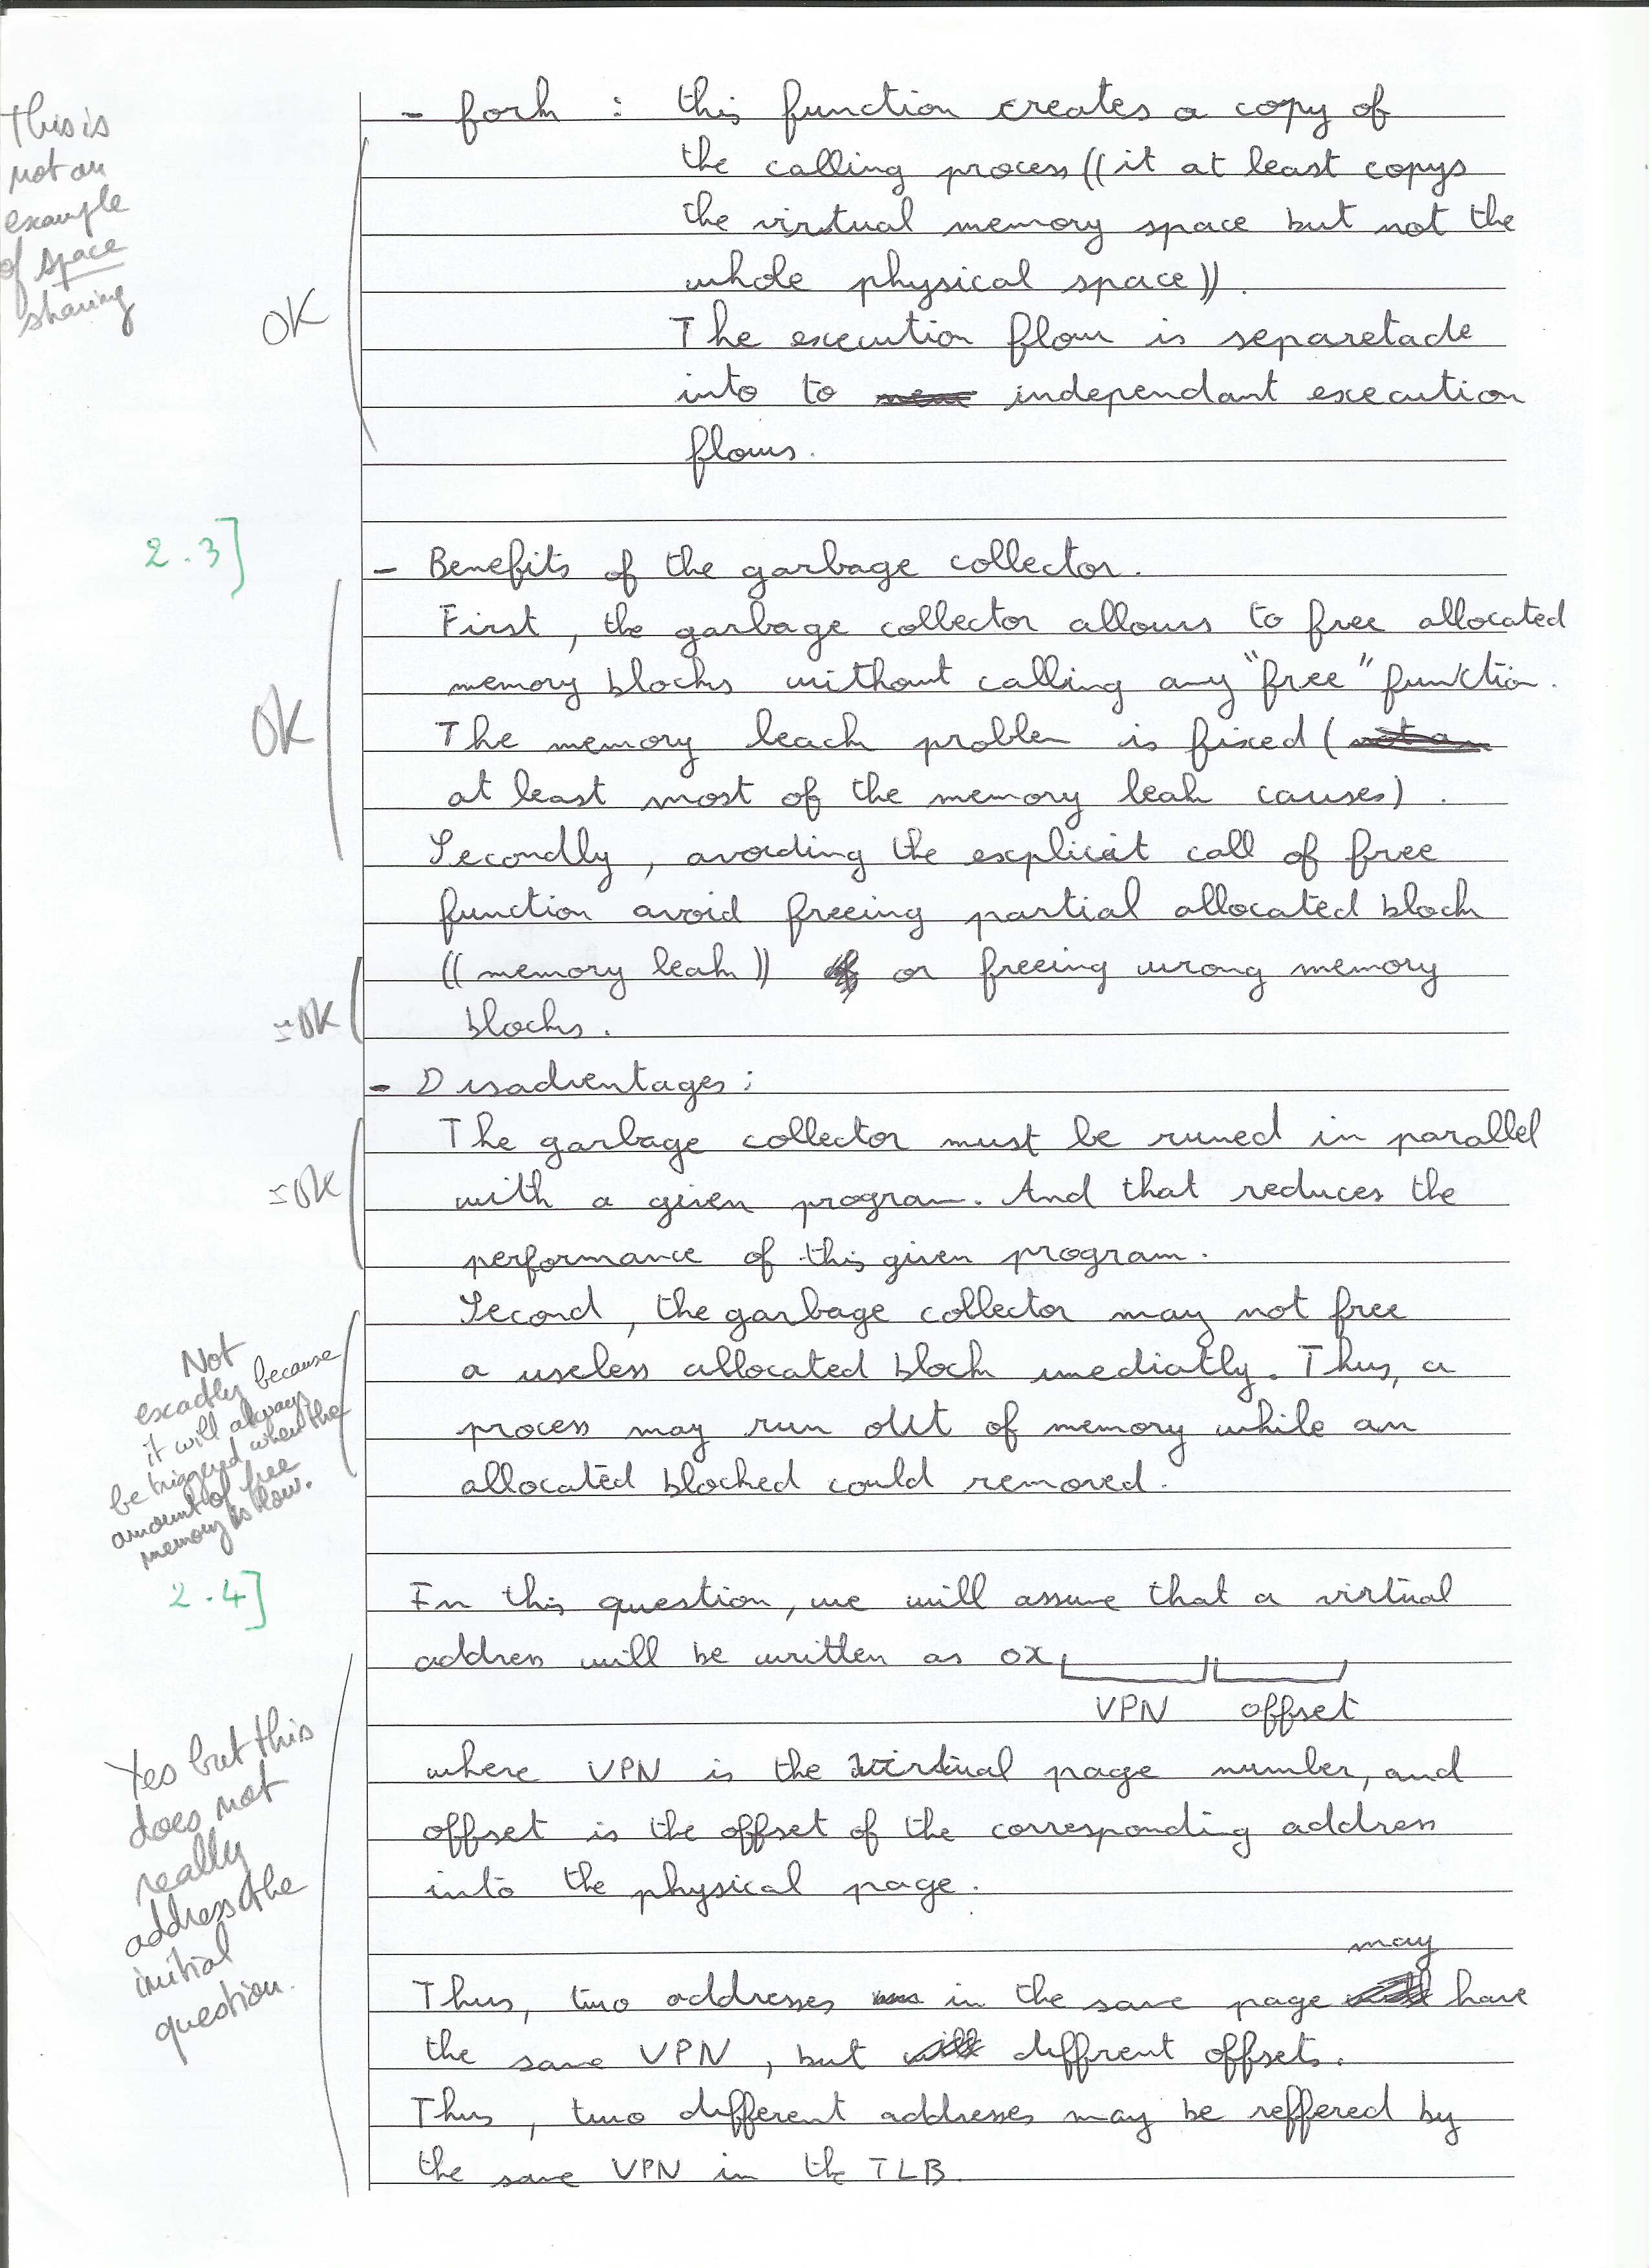 This is
not an
example
of space
sharing
OK
- fork : this function creates a copy of
the calling process ((it at least copys
the virtual memory space but not the
whole physical space)).
The execution flow is separetade
into to independant execution
flows.
2.3]
- Benefits of the garbage collector.
First, the garbage collector allows to free allocated
memory blocks without calling any "free" function.
OK
The memory leack problem is fixed (
at least most of the memory leak causes).
Secondly, avoiding the explicit call of free
function avoid freeing partial allocated block
((memory leak)) or freeing wrong memory
blocks.
≃OK
- Disadventages:
The garbage collector must be runed in parallel
with a given program. And that reduces the
performance of this given program.
≃OK
Second, the garbage collector may not free
a useless allocated block imediatly. Thus, a
process may run out of memory while an
allocated blocked could removed.
Not
exactly because
it will always
be triggered when the
amount of free
memory is low.
2.4]
In this question, we will assume that a virtual
address will be written as 0x
VPN offset
where VPN is the virtual page number, and
offset is the offset of the corresponding address
into the physical page.
Yes but this
does not
really
address the
initial
question.
may
Thus, two addresses in the same page have
the same VPN, but diffrent offsets.
Thus, two different addresses may be reffered by
the same VPN in the TLB.